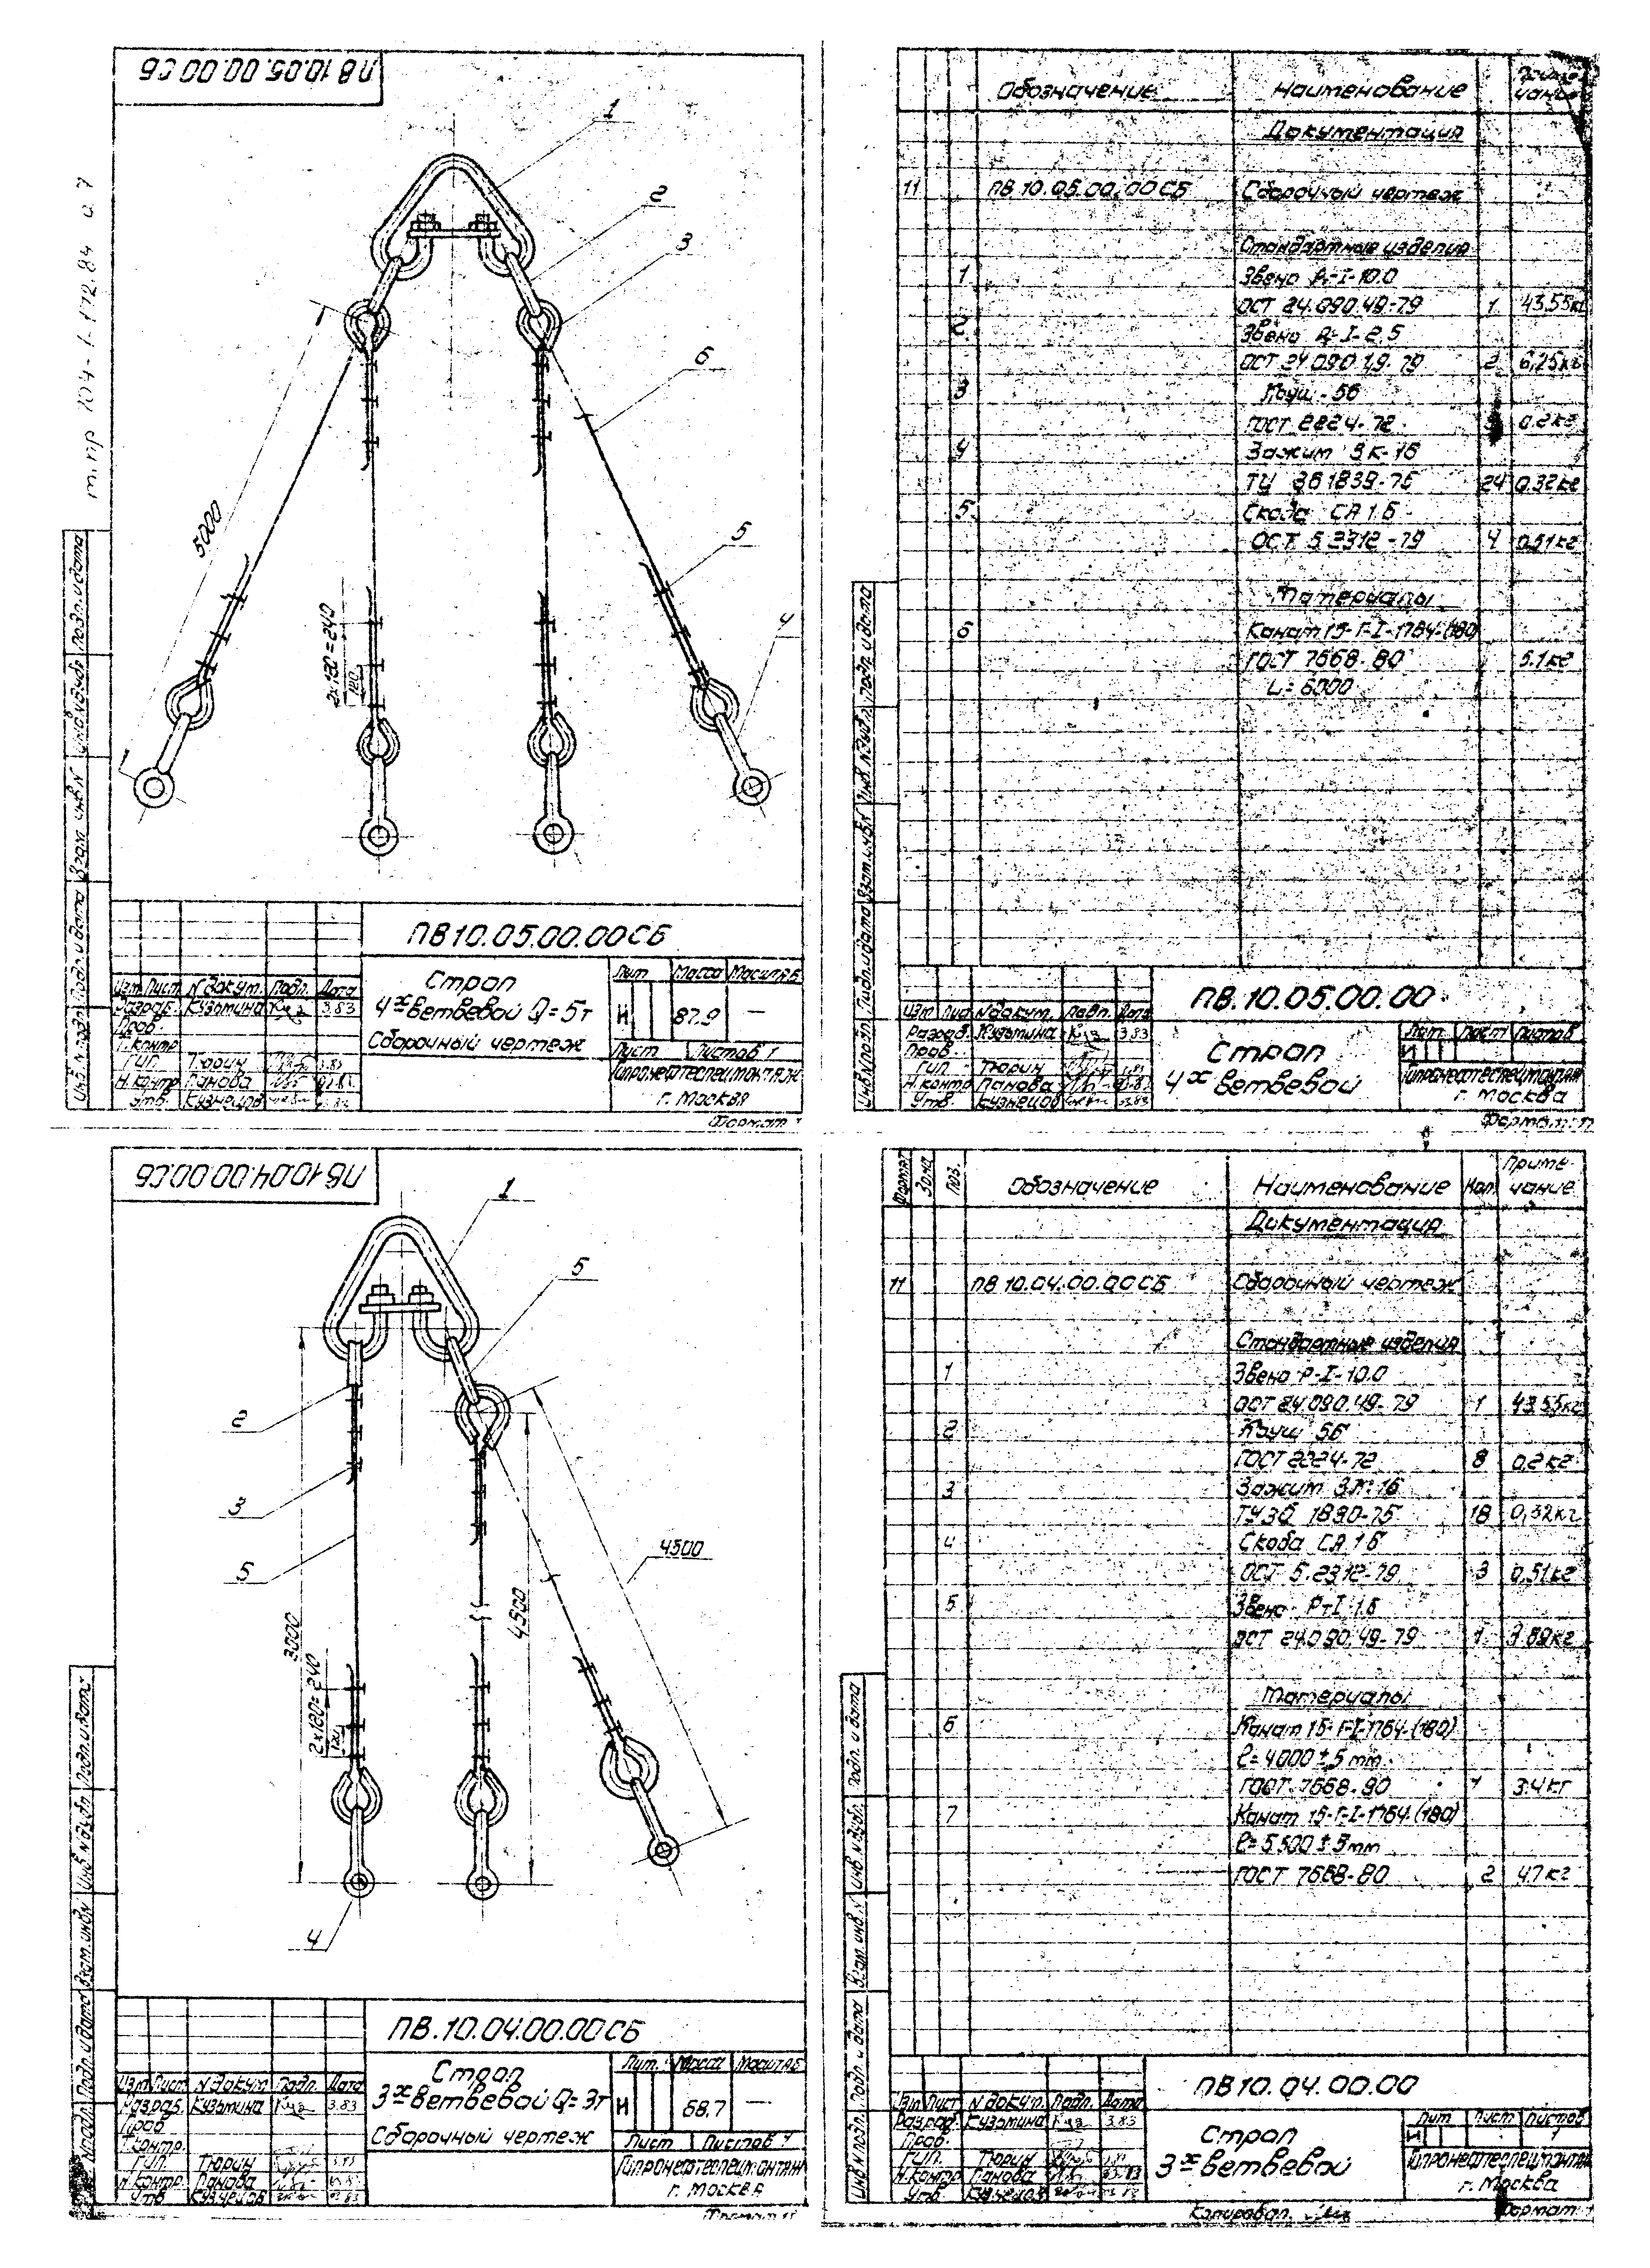 ПВ 10.05.00.00 СБ
1
2
3
6
5000
5
4
2×120=240
120
ПВ10.05.00.00СБ
Строп
4х ветвевой Q=5т
Сборочный чертеж
Лит. Масса Масштаб
И 87.9 —
Лист Листов 1
Гипронефтеспецмонтаж
г. Москва
Изм Лист N докум. Подп. Дата
Разраб. Кузьмина 3.83
Пров.
Т.контр
ГИП. Тюрин
Н.контр Панова
Утв. Кузнецов
Формат
Инв.N подл. Подп. и дата Взам. инв N Инв N дубл. Подп. и дата
Обозначение Наименование Примечание
Документация
11 ПВ.10.05.00.00СБ Сборочный чертеж
Стандартные изделия
1 Звено Рт-I-10.0
ОСТ 24.090.49-79 1 43.55кг
2 Звено
ОСТ 24.090.49-79 2 6,25кг
3 Коуш-56
ГОСТ 2224-72 0.2кг
4 Зажим ЗК-16
ТУ 36 1839-75 24 0.32кг
5 Скоба СА 1.6
ОСТ 5.2312-79 4 0,51кг
Материалы
6 Канат 15-Г-I-1764-(180)
ГОСТ 7668-80 5.1кг
L=6000
ПВ.10.05.00.00
Строп
4х ветвевой
Лит. Лист Листов
И
Гипронефтеспецмонтаж
г. Москва
Изм Лис N докум. Подп. Дата
Разраб. Кузьмина 3.83
Пров.
ГИП. Тюрин
Н.контр Панова
Утв. Кузнецов
Формат 11
ПВ 10.04.00.00СБ
1
5
2
3
5
4500
4500
3000
2×120=240
4
ПВ.10.04.00.00СБ
Строп
3х ветвевой Q=3т
Сборочный чертеж
Лит. Масса Масштаб
И 68.7 —
Лист Листов 1
Гипронефтеспецмонтаж
г. Москва
Изм Лист N докум. Подп. Дата
Разраб. Кузьмина 3.83
Пров
Т.контр.
ГИП. Тюрин
Н.контр Панова
Утв Кузнецов
Формат 11
Формат Зона Поз. Обозначение Наименование Кол. Примечание
Документация
11 ПВ 10.04.00.00СБ Сборочный чертеж
Стандартные изделия
1 Звено Рт-I-10.0
ОСТ 24.090.49-79 1 43.55кг
2 Коуш 56
ГОСТ 2224-72 8 0,2кг
3 Зажим
ТУ 36 18 0,32кг
4 Скоба СА 1.6
ОСТ 5.2312-79 3 0,51кг
5 Звено Рт-I-1.6
ОСТ 24.090.49-79 1
Материалы
6 Канат 15-Г-I-1764-(180)
ℓ=4000±5mm
ГОСТ 7668-80 1 3.4кг
7 Канат 15-Г-I-1764-(180)
ℓ=5500±5mm
ГОСТ 7668-80 2 4.7кг
ПВ10.04.00.00
Строп
3х ветвевой
Лит Лист Листов
И 1
Гипронефтеспецмонтаж
г. Москва
Изм Лист N докум. Подп. Дата
Разраб. Кузьмина 3.83
Пров.
ГИП. Тюрин
Н.контр Панова
Утв. Кузнецов
Копировал.
Формат